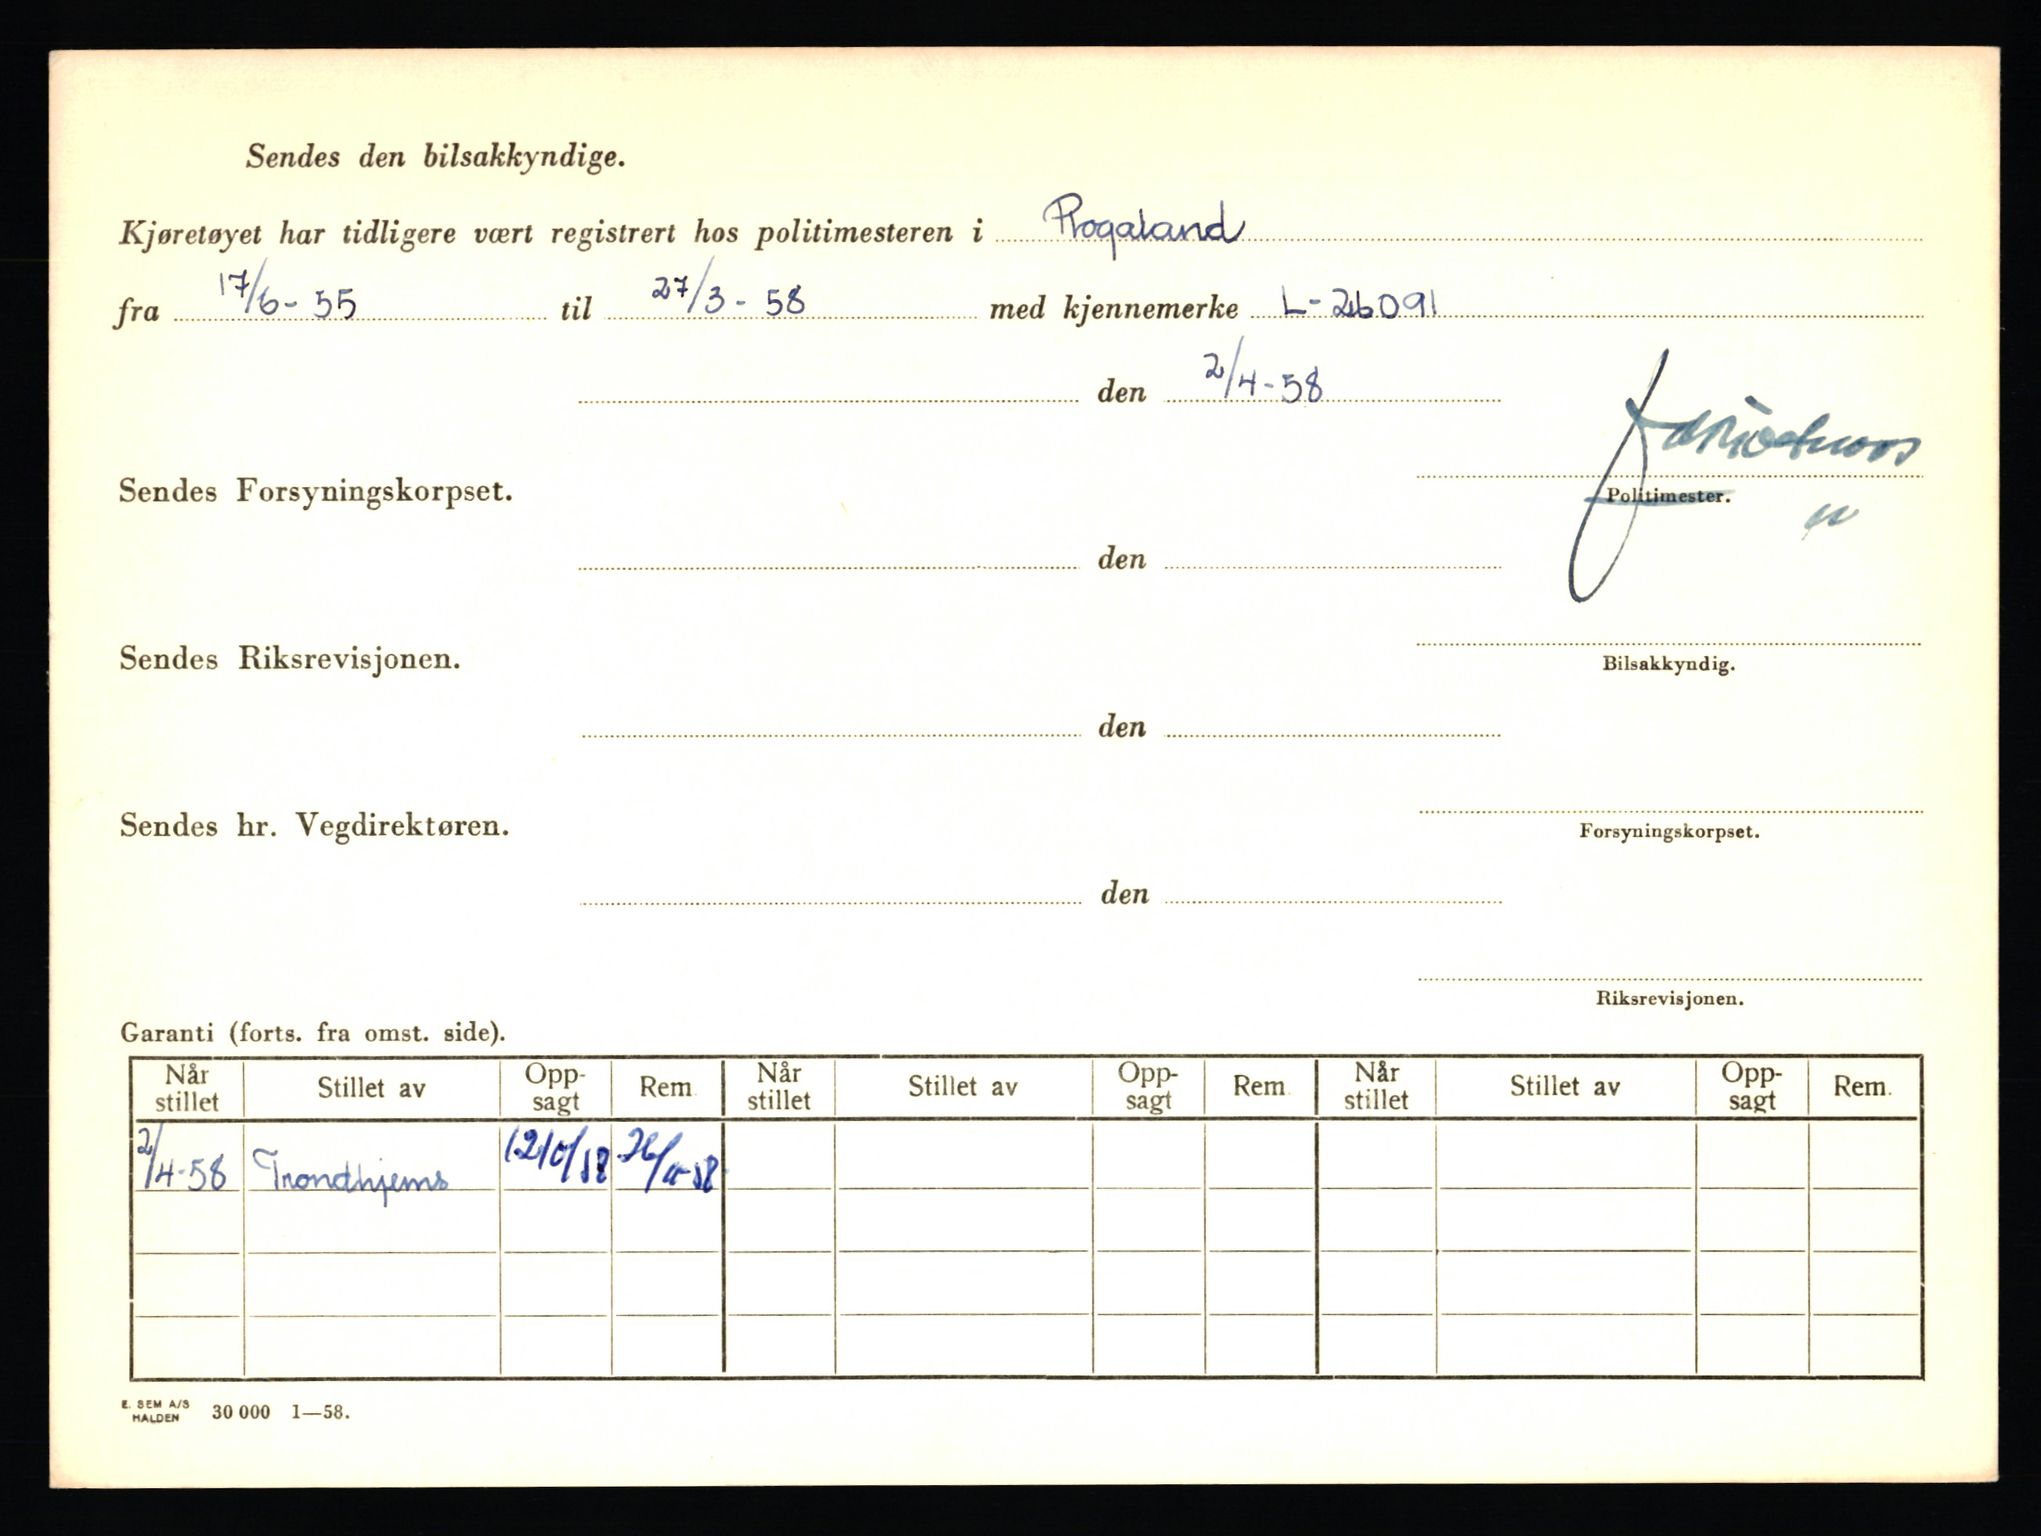 Sendes den bilsakkyndige.
Kjøretøyet har tidligere vært registrert hos politimesteren i Rogaland
fra 17/6-55 til 27/3-58 med kjennemerke L-26091
den 2/4-58
Sendes Forsyningskorpset.
Politimester.
den
Sendes Riksrevisjonen.
Bilsakkyndig.
den
Sendes hr. Vegdirektøren.
Forsyningskorpset.
den
Riksrevisjonen.
Garanti (forts. fra omst. side).
Når stillet Stillet av Opp-sagt Rem. Når stillet Stillet av Opp-sagt Rem. Når stillet Stillet av Opp-sagt Rem.
2/4-58 Trondhjems
E. SEM A/S
HALDEN 30 000 1—58.